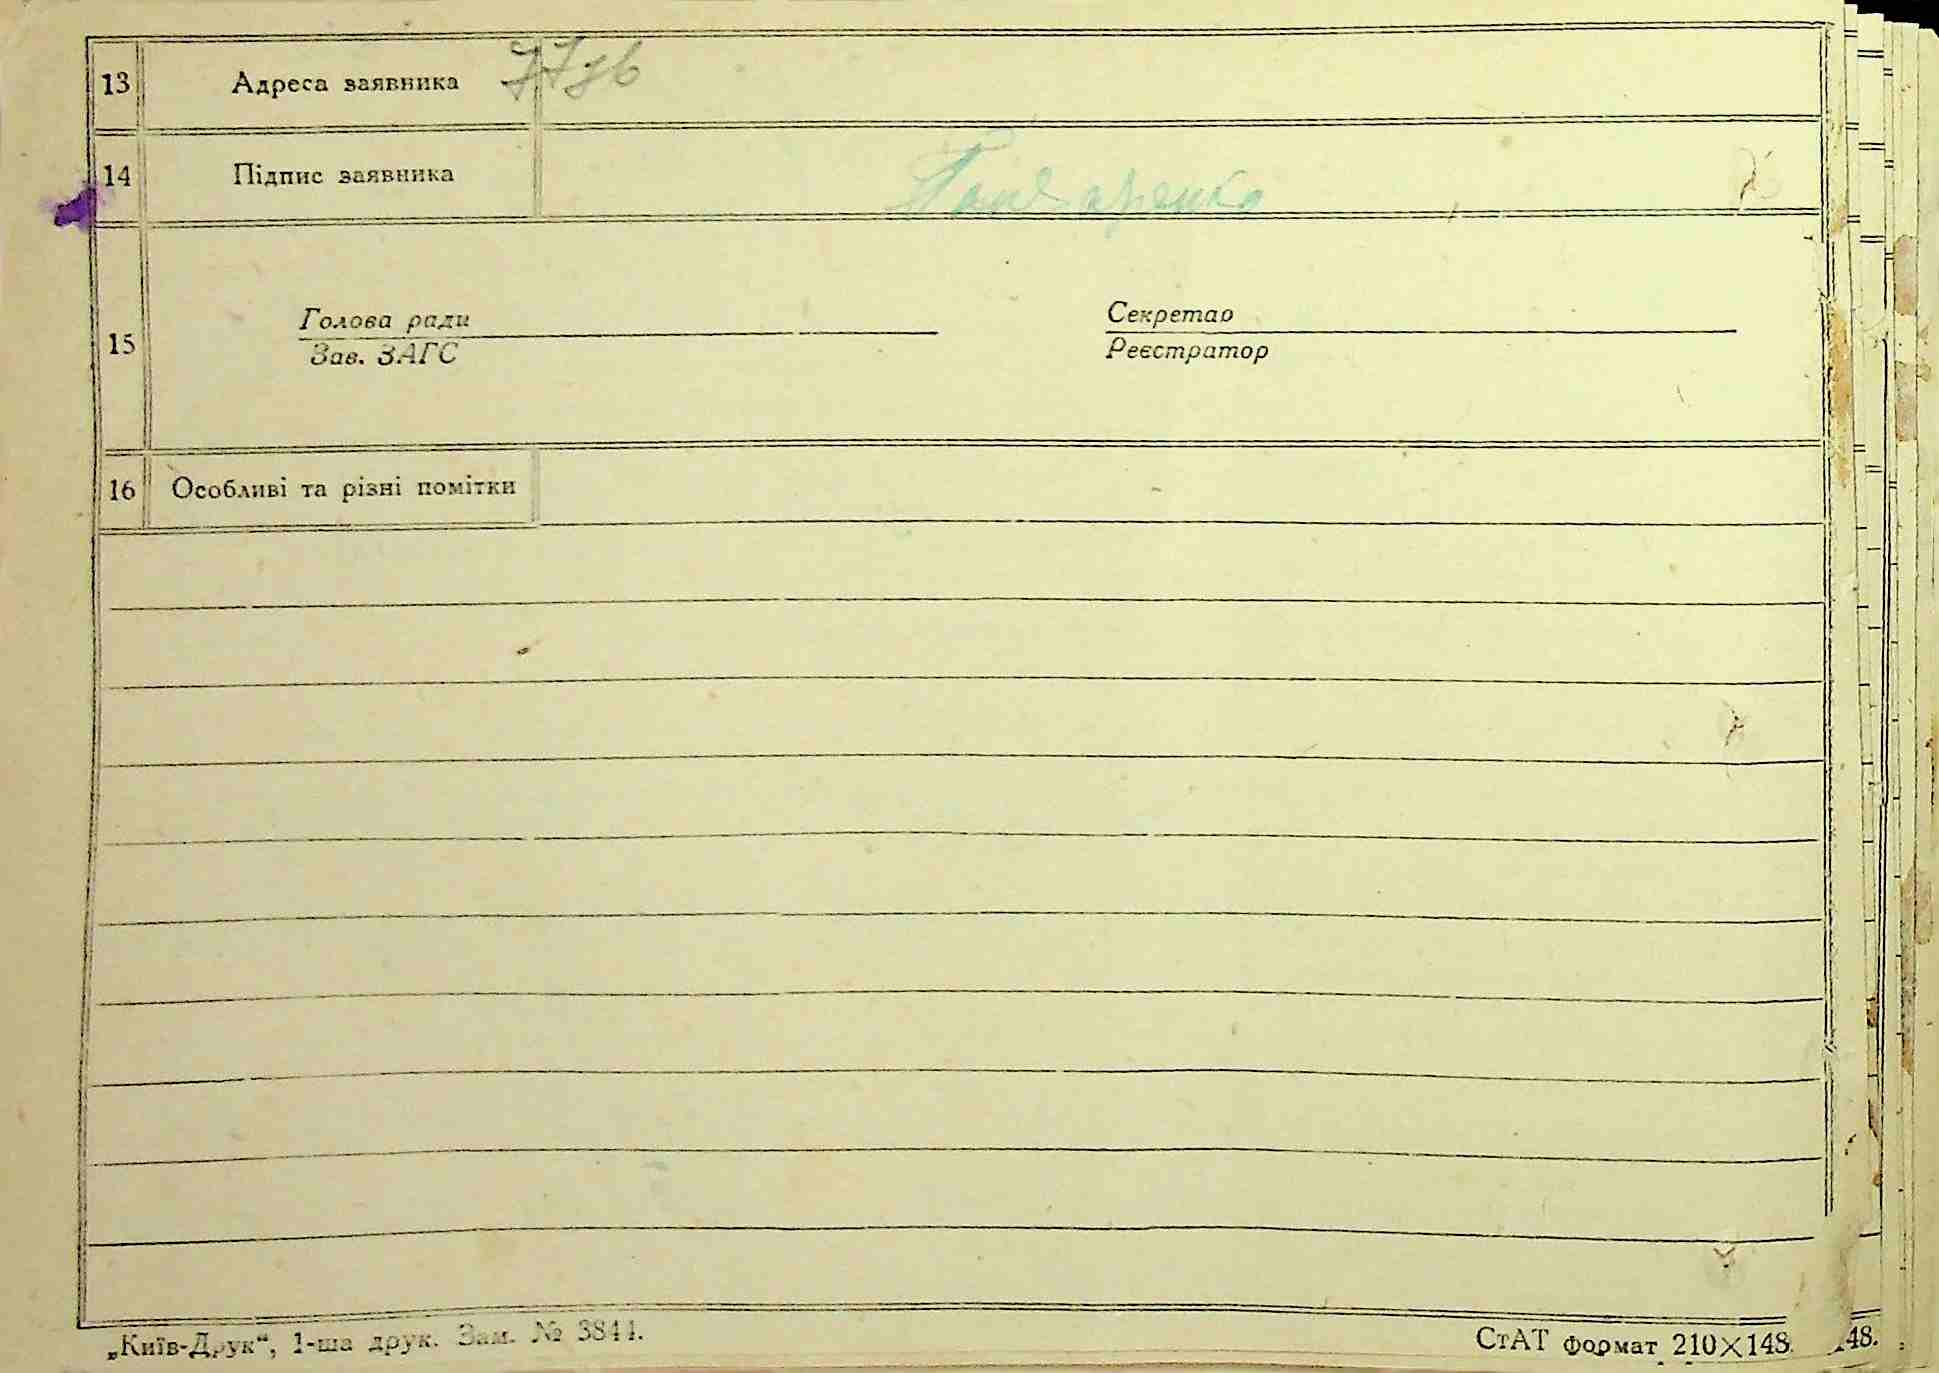 13 Адреса заявника
14 Підпис заявника
15
Голова ради
Зав. ЗАГС
Секретар
Реєстратор
16 Особливі та різні помітки
„Київ-Друк“, 1-ша друк. Зам. № 3844.
СтАТ формат 210×148.
48.